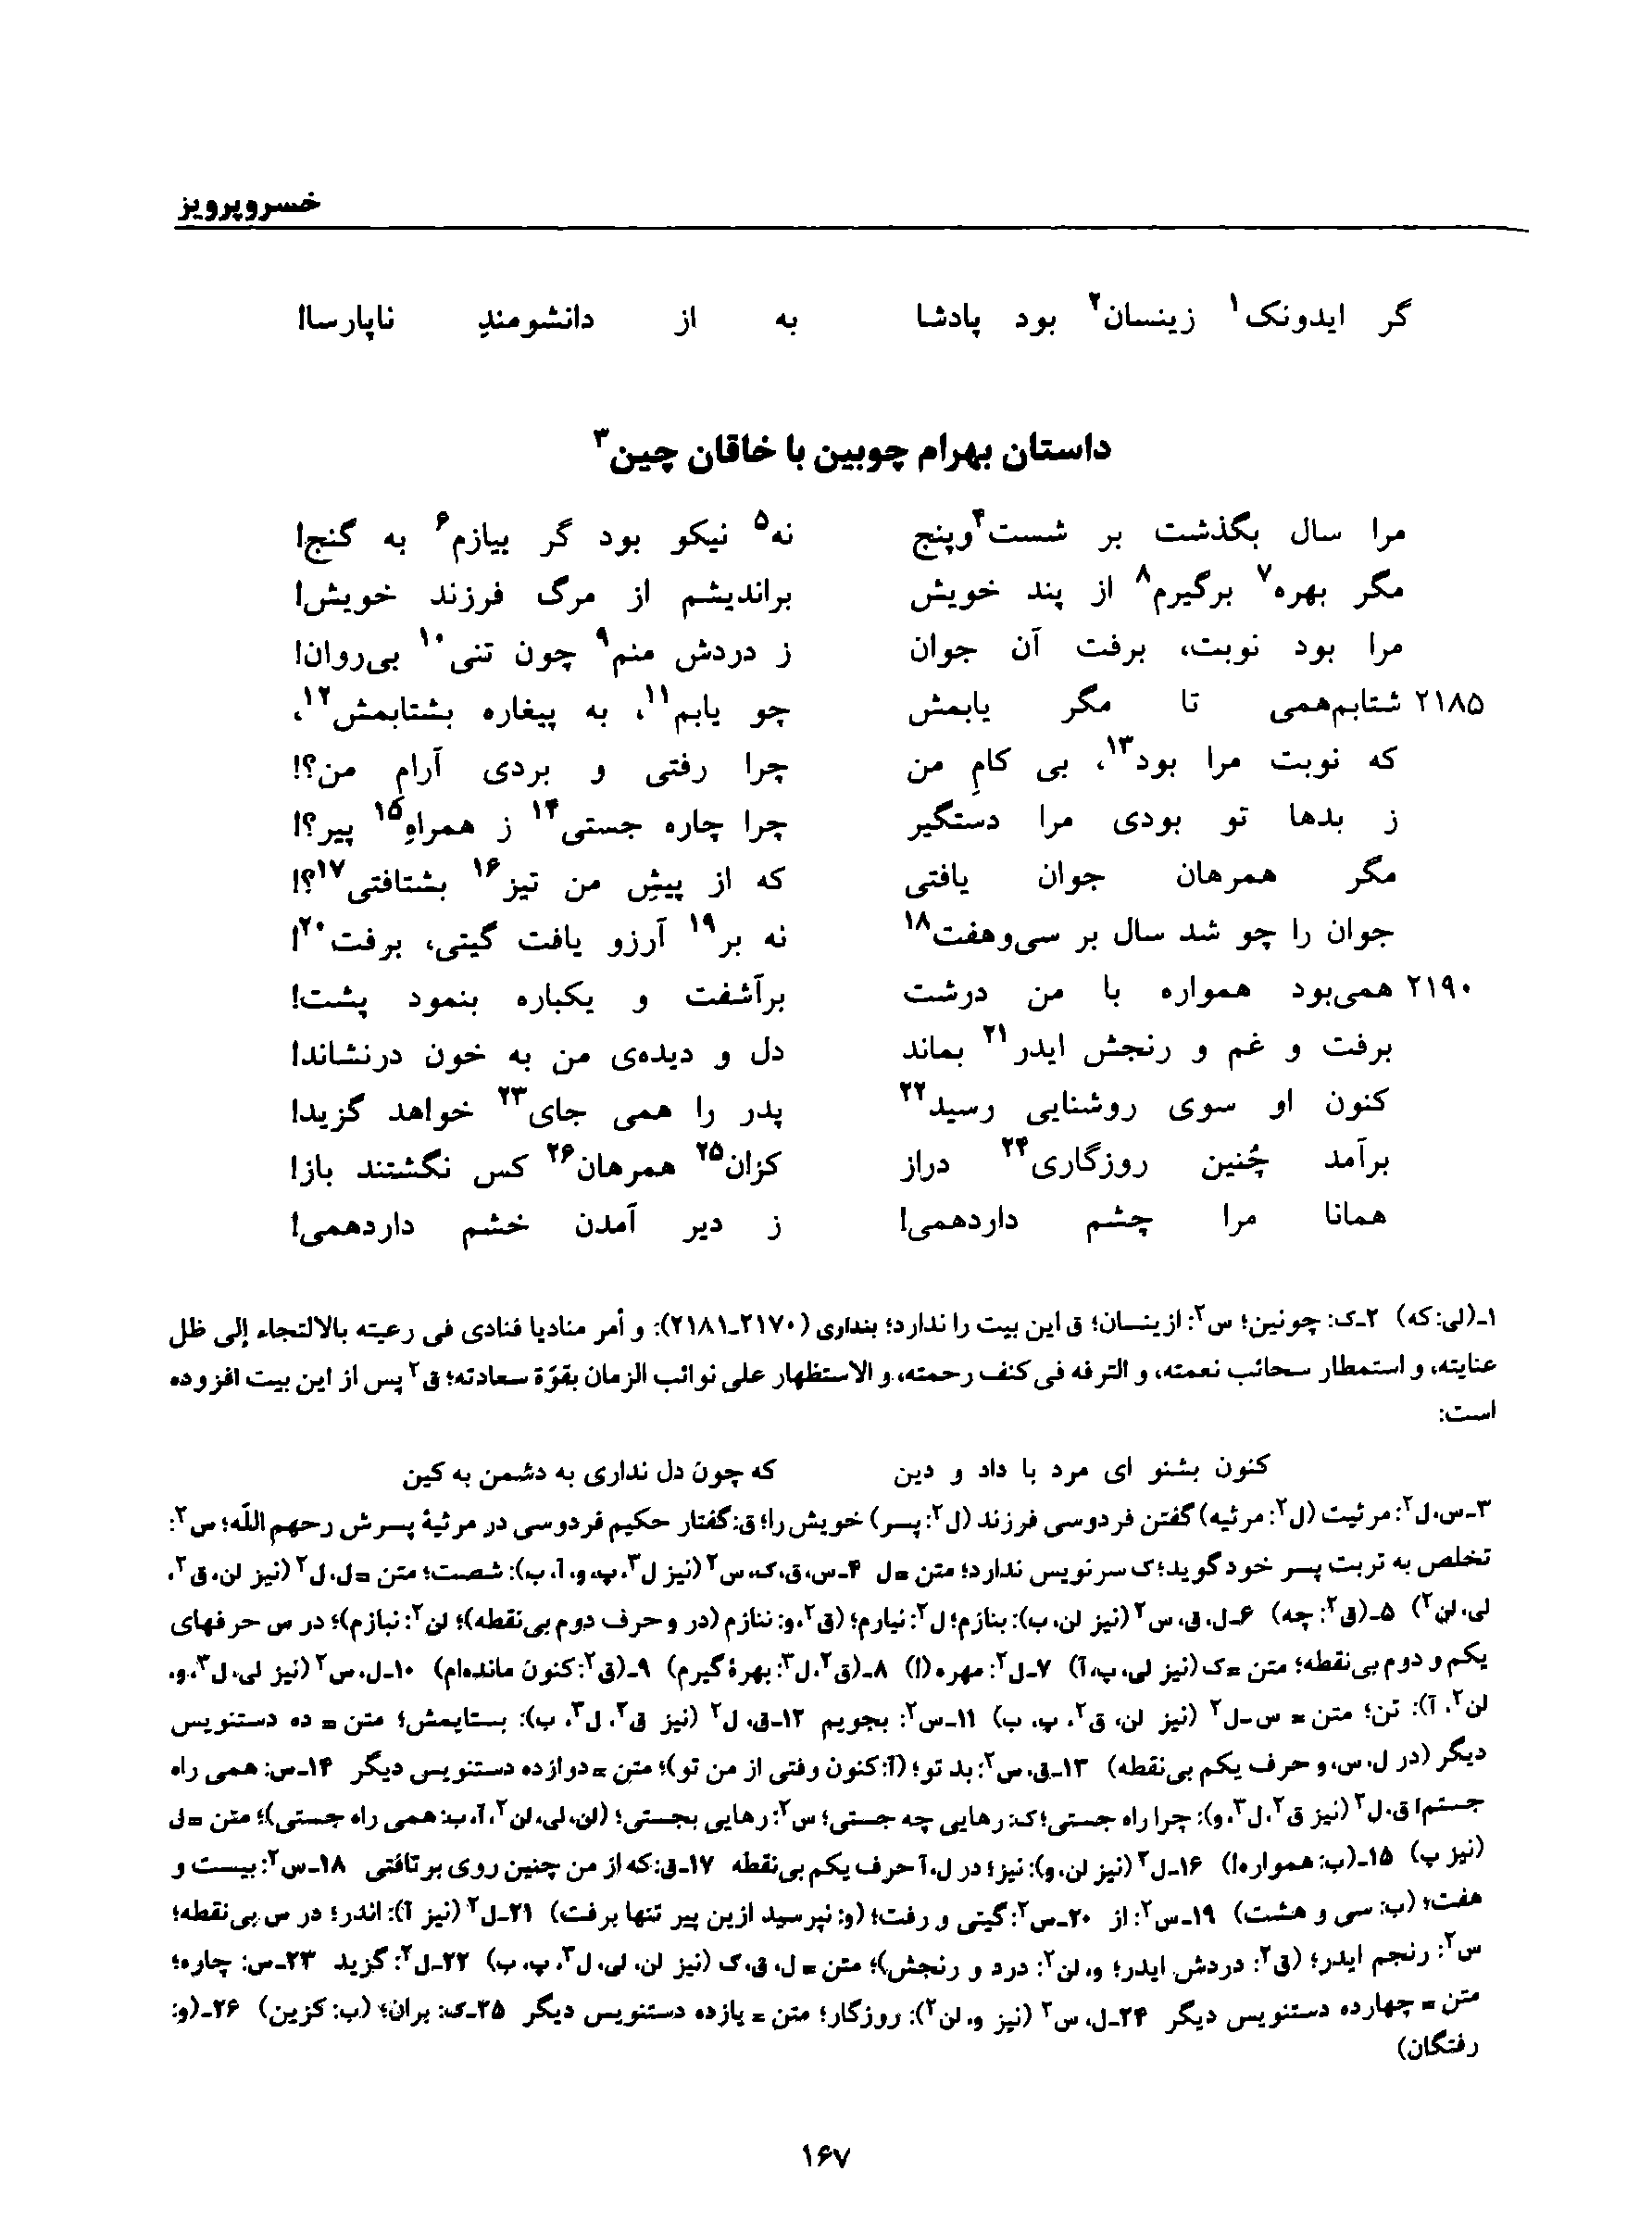 خسروپرویز
گر ایدونک۱ زینسان۲ بود پادشا به از دانشومندِ ناپارسا!
داستان بهرام چوبین با خاقان چین۳
مرا سال بگذشت بر شست۴وپنج نه۵ نیکو بود گر بیازم۶ به گنج!
مگر بهره۷ برگیرم۸ از پند خویش براندیشم از مرگ فرزند خویش!
مرا بود نوبت، برفت آن جوان ز دردش منم۹ چون تنی۱۰ بی‌روان!
۲۱۸۵ شتابم‌همی تا مگر یابمش چو یابم۱۱، به پیغاره بشتابمش۱۲،
که نوبت مرا بود۱۳، بی کامِ من چرا رفتی و بردی آرام من؟!
ز بدها تو بودی مرا دستگیر چرا چاره جستی۱۴ ز همراهِ۱۵ پیر؟!
مگر همرهان جوان یافتی که از پیشِ من تیز۱۶ بشتافتی۱۷؟!
جوان را چو شد سال بر سی‌وهفت۱۸ نه بر۱۹ آرزو یافت گیتی، برفت۲۰!
۲۱۹۰ همی‌بود همواره با من درشت برآشفت و یکباره بنمود پشت!
برفت و غم و رنجش ایدر۲۱ بماند دل و دیده‌ی من به خون درنشاند!
کنون او سوی روشنایی رسید۲۲ پدر را همی جای۲۳ خواهد گزید!
برآمد چُنین روزگاری۲۴ دراز کزان۲۵ همرهان۲۶ کس نگشتند باز!
همانا مرا چشم داردهمی! ز دیر آمدن خشم داردهمی!
۱ـ(لی:که) ۲ـک: چونین؛ س۲: ازینسان؛ ق این بیت را ندارد؛ بنداری (۲۱۷۰ـ۲۱۸۱): و أمر منادیا فنادی فی رعیته بالالتجاء إلی ظل
عنایته، و استمطار سحائب نعمته، و الترفه فی کنف رحمته، و الاستظهار علی نوائب الزمان بقوّة سعادته؛ ق۲ پس از این بیت افزوده
است:
کنون بشنو ای مرد با داد و دین که چون دل نداری به دشمن به کین
۳ـس، ل۲: مرثیت (ل۲: مرثیه) گفتن فردوسی فرزند (ل۲: پسر) خویش را؛ ق: گفتار حکیم فردوسی در مرثیهٔ پسرش رحهم اللّه؛ س۲:
تخلص به تربت پسر خود گوید؛ ک سرنویس ندارد؛ متن = ل ۴ـس، ق، ک، س۲ (نیز ل۳، پ، و، آ، ب): شصت؛ متن = ل، ل۲ (نیز لن، ق۲،
لی، لن۲) ۵ـ(ق۲: چه) ۶ـل، ق، س۲ (نیز لن، ب): بنازم؛ ل۲: نیارم؛ (ق۲، و: ننازم (در و حرف دوم بی‌نقطه)؛ لن۲: نبازم)؛ در س حرفهای
یکم و دوم بی‌نقطه؛ متن = ک (نیز لی، پ، آ) ۷ـل۲: مهره (!) ۸ـ(ق۲، ل۳: بهرهٔ گیرم) ۹ـ(ق۲: کنون مانده‌ام) ۱۰ـل، س۲ (نیز لی، ل۳، و،
لن۲، آ): تن؛ متن = س-ل۲ (نیز لن، ق۲، پ، ب) ۱۱ـس۲: بجویم ۱۲ـق، ل۲ (نیز ق۲، ل۳، ب): بستایمش؛ متن = ده دستنویس
دیگر (در ل، س، و حرف یکم بی‌نقطه) ۱۳ـق، س۲: بد تو؛ (آ: کنون رفتی از من تو)؛ متن = دوازده دستنویس دیگر ۱۴ـس: همی راه
جستم! ق، ل۲ (نیز ق۲، ل۳، و): چرا راه جستی؛ ک: رهایی چه جستی؛ س۲: رهایی بجستی؛ (لن، لی، لن۲، آ، ب: همی راه جستی)؛ متن = ل
(نیز پ) ۱۵ـ(ب: هموار،!) ۱۶ـل۲ (نیز لن، و): نیز؛ در ل، آ حرف یکم بی‌نقطه ۱۷ـق: که از من چنین روی برتافتی ۱۸ـس۲: بیست و
هفت؛ (ب: سی و هشت) ۱۹ـس۲: از ۲۰ـس۲: گیتی و رفت؛ (و: نپرسید ازین پیر تنها برفت) ۲۱ـل۲ (نیز آ): اندر؛ در س بی‌نقطه؛
س۲: رنجم ایدر؛ (ق۲: دردش ایدر؛ و، لن۲: درد و رنجش)؛ متن = ل، ق، ک (نیز لن، لی، ل۳، پ، ب) ۲۲ـل۲: گزید ۲۳ـس: چاره؛
متن = چهارده دستنویس دیگر ۲۴ـل، س۲ (نیز و، لن۲): روزگار؛ متن = یازده دستنویس دیگر ۲۵ـک: بران؛ (ب: کزین) ۲۶ـ(و:
رفتگان)
۱۶۷